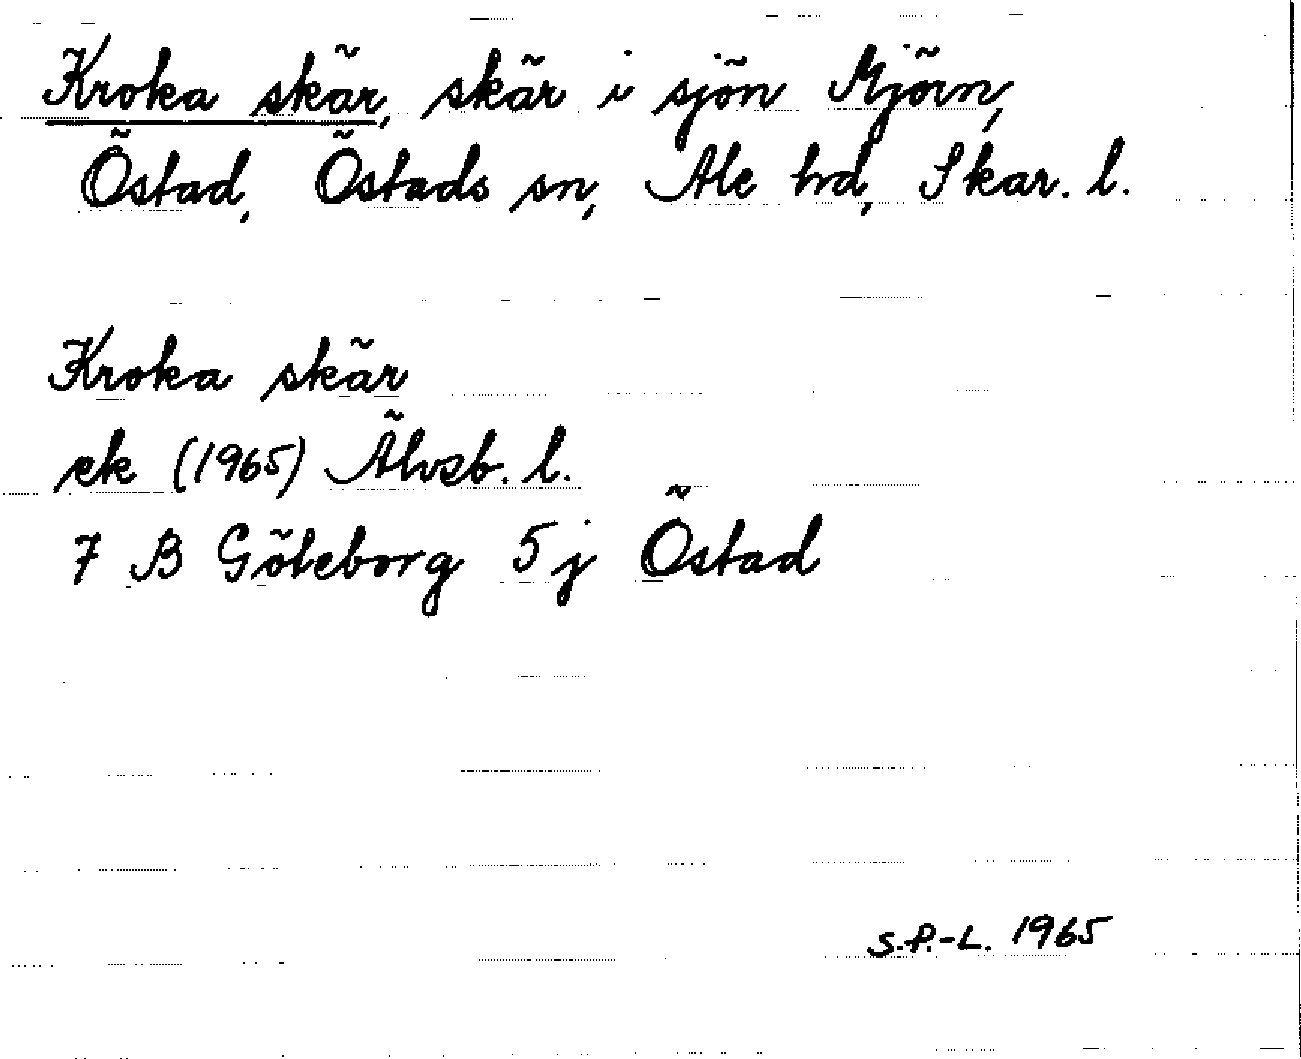 Kroka skär, skär i sjön Mjörn,
Östad, Östads sn, Ale hd, Skar. l.
Kroka skär
ek (1965) Älvsb. l.
7 B Göteborg 5 j Östad
S.P.-L. 1965